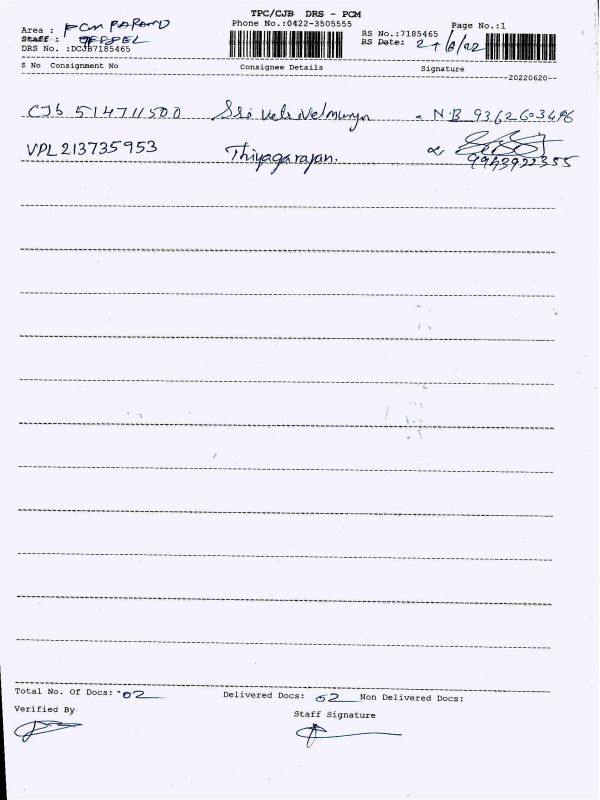 TPC/CJB DRS - PCM
Phone No.:0422-3505555 Page No.:1
Area : PCM
Staff :
DRS No. :DCJB7185465
RS No.:7185465
RS Date:
S No Consignment No Consignee Details Signature
20220620
CJb 514711500 Sri - N.B
VPL 213735953 Thiyagarajan.
9943922355
Total No. Of Docs: 02 Delivered Docs: 02 Non Delivered Docs:
Verified By
Staff Signature